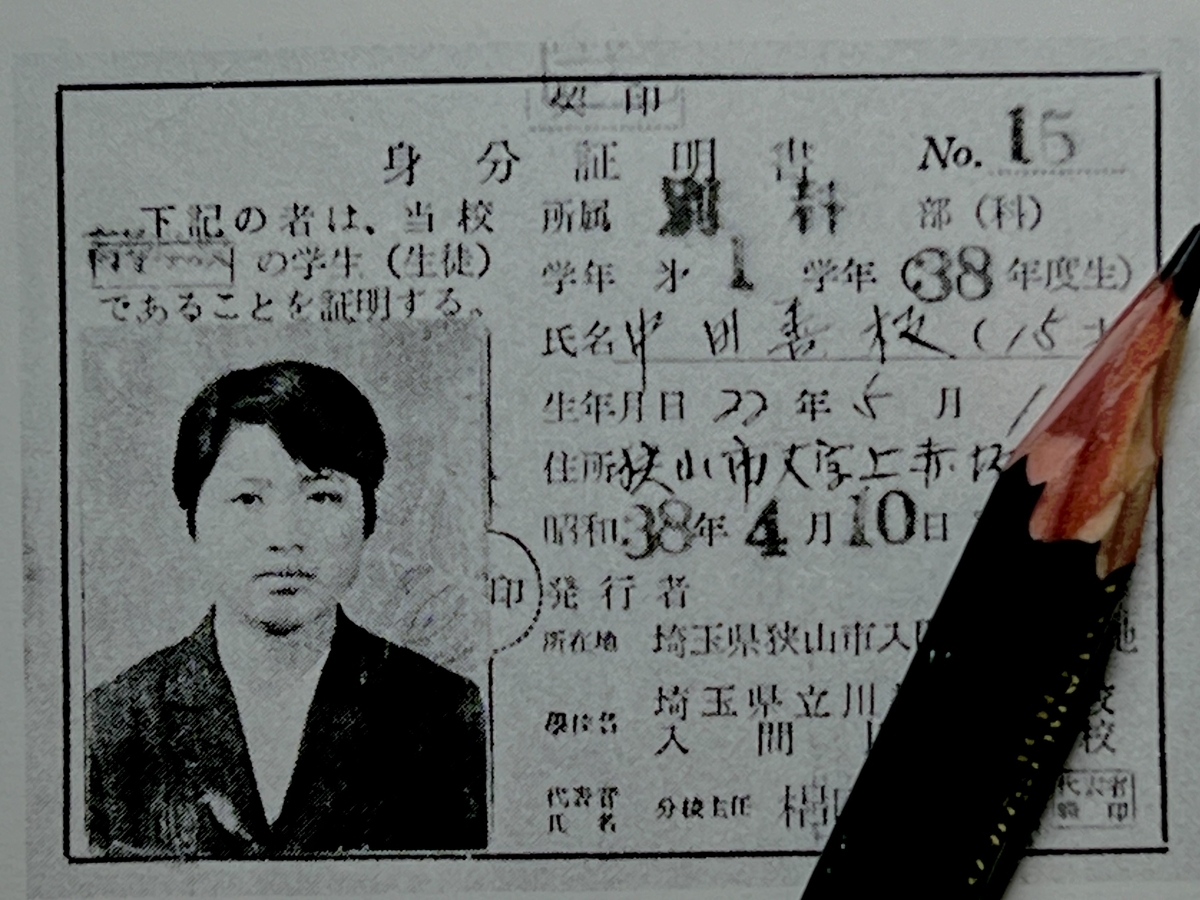 契 印
身分証明書 No. 15
下記の者は、当校
の学生（生徒）
であることを証明する。
所属 別科 部（科）
学年 才 1 学年（38年度生）
氏名 中田善枝（15才
生年月日 22年5月1
住所 狭山市大字上赤坂
昭和38年4月10日
印
発行者
所在地 埼玉県狭山市入
学校名 埼玉県立川
入間
校
代表者氏名 分校主任
代表者
職印